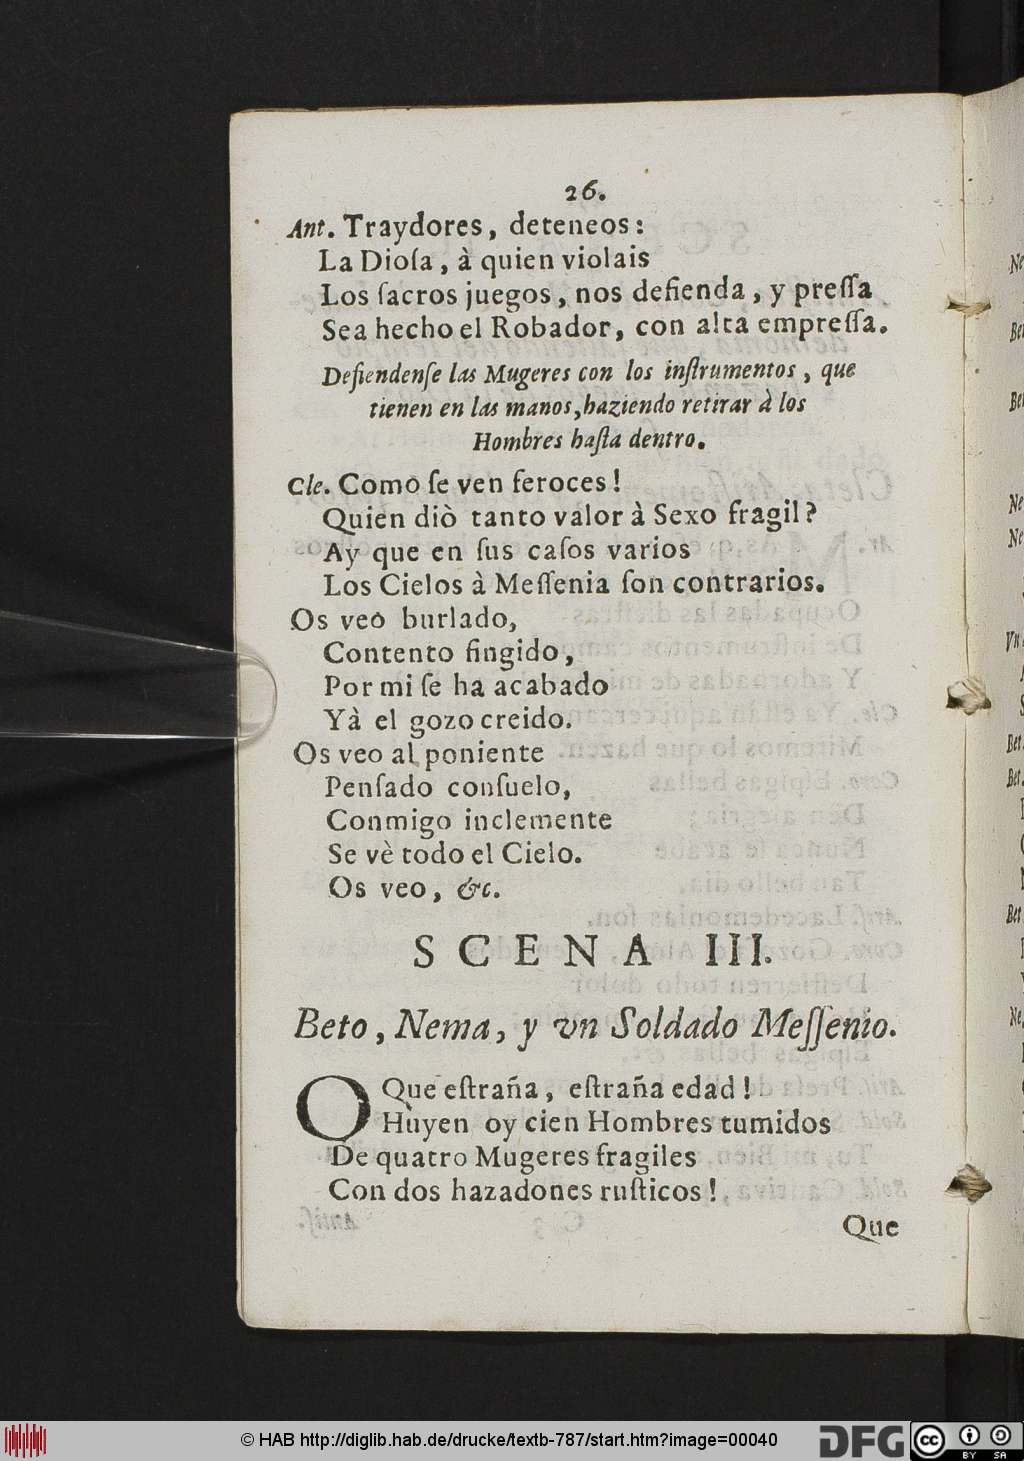 26.
Ant. Traydores, deteneos:
La Dioſa, à quien violais
Los ſacros juegos, nos defienda, y preſſa
Sea hecho el Robador, con alta empreſſa.
Defiendenſe las Mugeres con los inſtrumentos, que
tienen en las manos, haziendo retirar à los
Hombres haſta dentro.
Cle. Como ſe ven feroces!
Quien diò tanto valor à Sexo fragil?
Ay que en ſus caſos varios
Los Cielos à Meſſenia ſon contrarios.
Os veo burlado,
Contento fingido,
Por mi ſe ha acabado
Yà el gozo creido.
Os veo al poniente
Penſado conſuelo,
Conmigo inclemente
Se vè todo el Cielo.
Os veo, &c.
SCENA III.
Beto, Nema, y vn Soldado Meſſenio.
O Que eſtraña, eſtraña edad!
Hùyen oy cien Hombres tumidos
De quatro Mugeres fragiles
Con dos hazadones ruſticos!
Que
© HAB http://diglib.hab.de/drucke/textb-787/start.htm?image=00040
DFG
cc BY SA